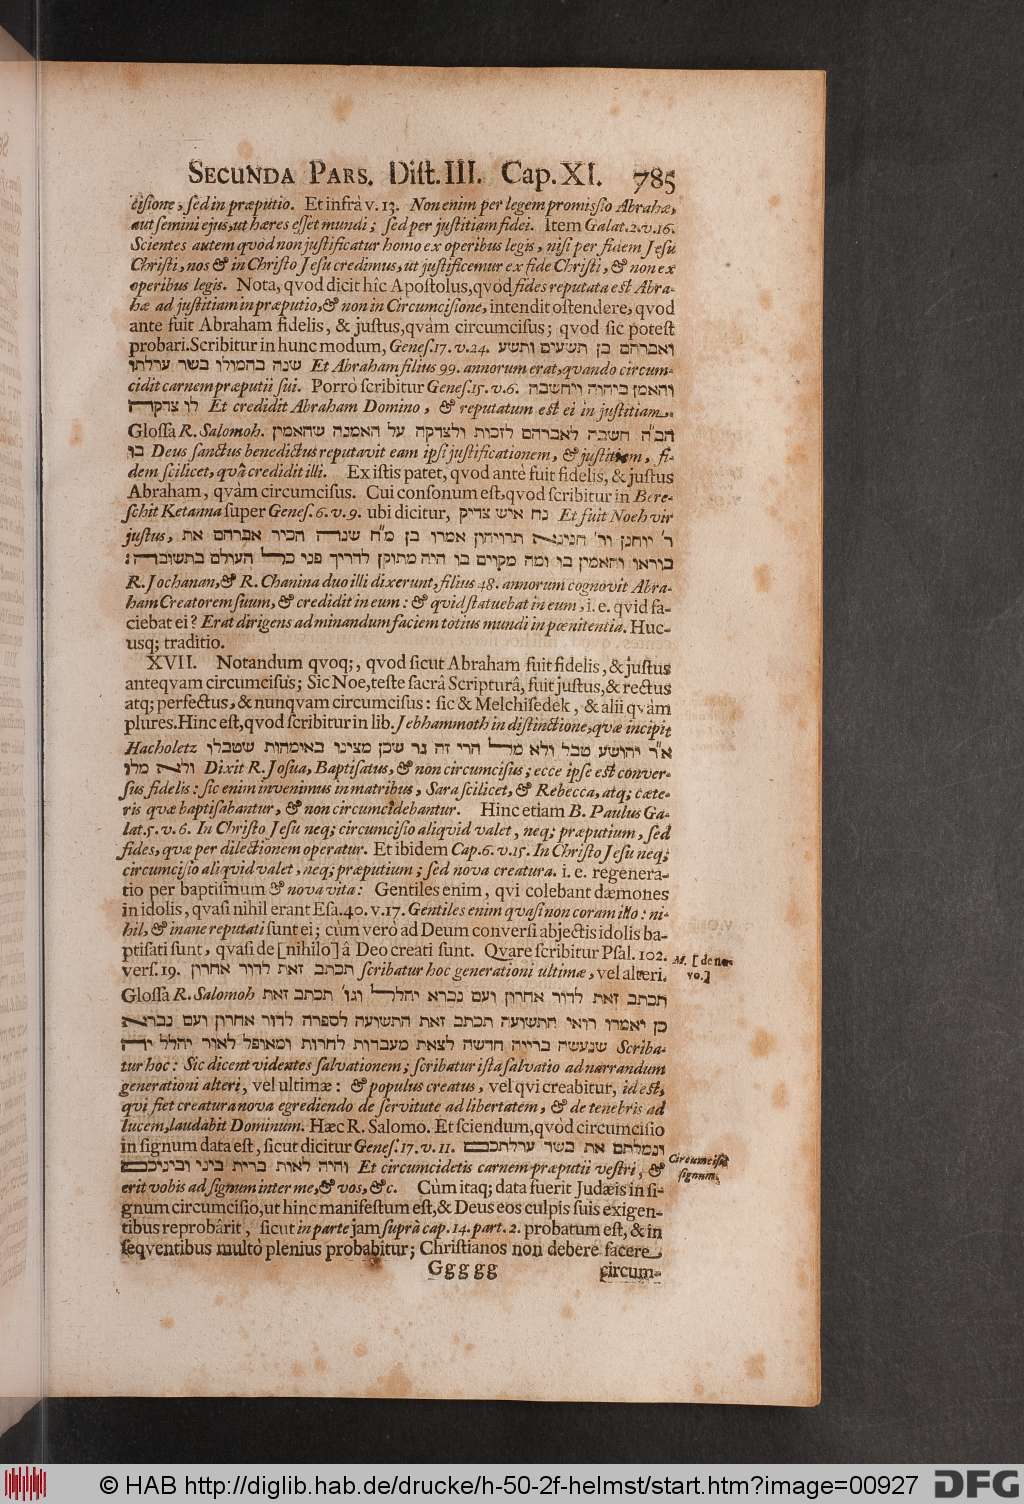 SECUNDA PARS. Diſt. III. Cap. XI. 785
ciſione, ſed in præputio. Et infrà v. 13. Non enim per legem promiſſio Abrahæ,
aut ſemini ejus, ut hæres eſſet mundi; ſed per juſtitiam fidei. Item Galat. 2. v. 16.
Scientes autem qvod non juſtificatur homo ex operibus legis, niſi per fidem Jeſu
Chriſti, nos & in Chriſto Jeſu credimus, ut juſtificemur ex fide Chriſti, & non ex
operibus legis. Nota, qvod dicit hîc Apoſtolus, qvod fides reputata eſt Abra-
hæ ad juſtitiam in præputio, & non in Circumciſione, intendit oſtendere, qvod
ante fuit Abraham fidelis, & juſtus, qvàm circumciſus; qvod ſic poteſt
probari. Scribitur in hunc modum, Geneſ. 17. v. 24. ואברהם בן תשעים ותשע
שנה בהמולו בשר ערלתו Et Abraham filius 99. annorum erat, qvando circum-
cidit carnem præputii ſui. Porrò ſcribitur Geneſ. 15. v. 6. והאמן ביהוה ויחשבה
לו צדקה Et credidit Abraham Domino, & reputatum eſt ei in juſtitiam.
Gloſſa R. Salomoh. הב״ה חשבה לאברהם לזכות ולצדקה על האמנה שהאמין
בו Deus ſanctus benedictus reputavit eam ipſi juſtificationem, & juſtitiam, fi-
dem ſcilicet, qvâ credidit illi. Ex iſtis patet, qvod antè fuit fidelis, & juſtus
Abraham, qvàm circumciſus. Cui conſonum eſt, qvod ſcribitur in Bere-
ſchit Ketanna ſuper Geneſ. 6. v. 9. ubi dicitur, נח איש צדיק Et fuit Noeh vir
juſtus, ר׳ יוחנן ור׳ חנינא תרויהון אמרו בן מ״ח שנה הכיר אברהם את
בוראו והאמין בו ומה מקוים בו היה מתוקן לדריך פני כל העולם בתשובה:
R. Jochanan, & R. Chanina duo illi dixerunt, filius 48. annorum cognovit Abra-
ham Creatorem ſuum, & credidit in eum: & qvid ſtatuebat in eum, i. e. qvid fa-
ciebat ei? Erat dirigens ad minandum faciem totius mundi in pœnitentia. Huc-
usq; traditio.
XVII. Notandum qvoq;, qvod ſicut Abraham fuit fidelis, & juſtus
anteqvam circumciſus; Sic Noe, teſte ſacrâ Scripturâ, fuit juſtus, & rectus
atq; perfectus, & nunqvam circumciſus: ſic & Melchiſedek, & alii qvàm
plures. Hinc eſt, qvod ſcribitur in lib. Jebhammoth in diſtinctione, qvæ incipit
Hacholetz א״ר יהושע טבל ולא מל הרי זה גר שכן מצינו באימהות שטבלו
ולא מלו Dixit R. Joſua, Baptiſatus, & non circumciſus; ecce ipſe eſt conver-
ſus fidelis: ſic enim invenimus in matribus, Sara ſcilicet, & Rebecca, atq; cæte-
ris qvæ baptiſabantur, & non circumcidebantur. Hinc etiam B. Paulus Ga-
lat. 5. v. 6. In Chriſto Jeſu neq; circumciſio aliqvid valet, neq; præputium, ſed
fides, qvæ per dilectionem operatur. Et ibidem Cap. 6. v. 15. In Chriſto Jeſu neq;
circumciſio aliqvid valet, neq; præputium; ſed nova creatura. i. e. regenera-
tio per baptiſmum & nova vita: Gentiles enim, qvi colebant dæmones
in idolis, qvaſi nihil erant Eſa. 40. v. 17. Gentiles enim qvaſi non coram illo: ni-
hil, & inane reputati ſunt ei; cùm verò ad Deum converſi abjectis idolis ba-
ptiſati ſunt, qvaſi de [nihilo] â Deo creati ſunt. Qvare ſcribitur Pſal. 102.
M. [ de no-
vo.]
verſ. 19. תכתב זאת לדור אחרון ſcribatur hoc generationi ultimæ, vel alteri.
Gloſſa R. Salomoh תכתב זאת לדור אחרון ועם נברא יהלל וגו׳ תכתב זאת
כן יאמרו רואי התשועה תכתב זאת התשועה לספרה לדור אחרון ועם נברא
שנעשה ברייה חדשה לצאת מעבדות לחרות ומאופל לאור יהלל יה Scriba-
tur hoc: Sic dicent videntes ſalvationem; ſcribatur iſta ſalvatio ad narrandum
generationi alteri, vel ultimæ: & populus creatus, vel qvi creabitur, id eſt,
qvi fiet creatura nova egrediendo de ſervitute ad libertatem, & de tenebris ad
lucem, laudabit Dominum. Hæc R. Salomo. Et ſciendum, qvòd circumciſio
in ſignum data eſt, ſicut dicitur Geneſ. 17. v. 11. ונמלתם את בשר ערלתכם
Circumciſio
ſignum.
והיה לאות ברית ביני וביניכם Et circumcidetis carnem præputii veſtri, &
erit vobis ad ſignum inter me, & vos, &c. Cùm itaq; data fuerit Judæis in ſi-
gnum circumciſio, ut hinc manifeſtum eſt, & Deus eos culpis ſuis exigen-
tibus reprobârit, ſicut in parte jam ſuprà cap. 14. part. 2. probatum eſt, & in
ſeqventibus multò plenius probabitur; Chriſtianos non debere facere
Ggg gg circum-
© HAB http://diglib.hab.de/drucke/h-50-2f-helmst/start.htm?image=00927 DFG